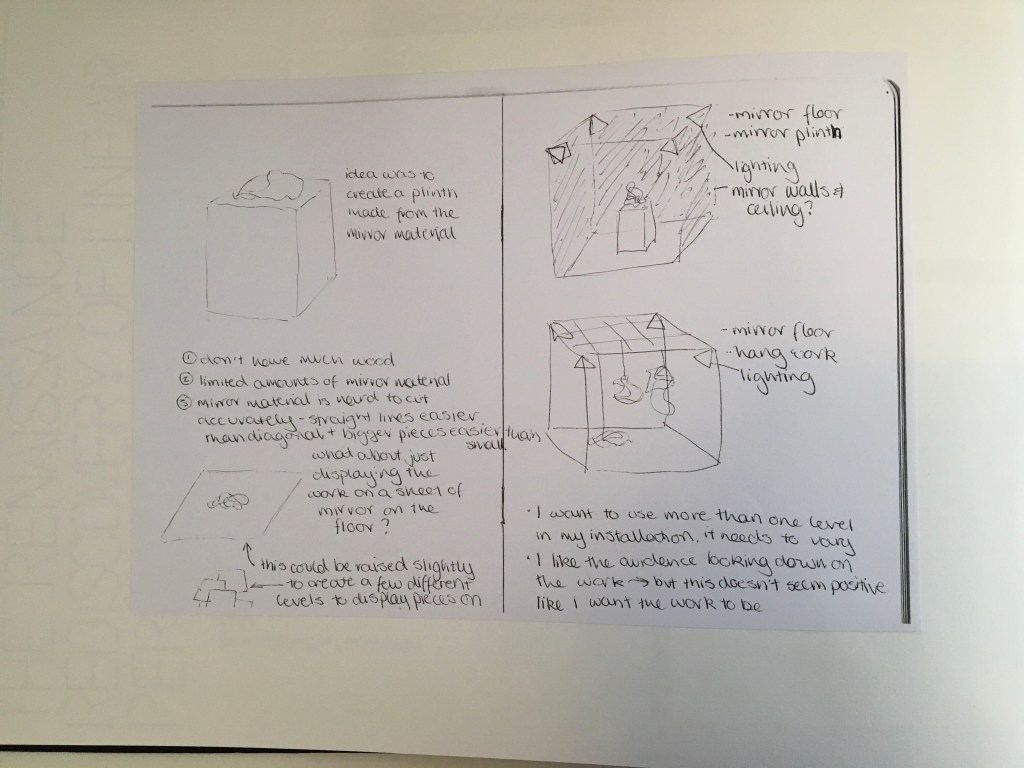 idea was to
create a plinth
made from the
mirror material
① don't have much wood
② limited amounts of mirror material
③ mirror material is hard to cut
accurately - straight lines easier
than diagonal + bigger pieces easier than
small
what about just
displaying the
work on a sheet of
mirror on the
floor?
this could be raised slightly
to create a few different
levels to display pieces on
- mirror floor
- mirror plinth
lighting
- mirror walls &
ceiling?
- mirror floor
- hang work
- lighting
· I want to use more than one level
in my installation, it needs to vary
· I like the audience looking down on
the work → but this doesn't seem positive
like I want the work to be